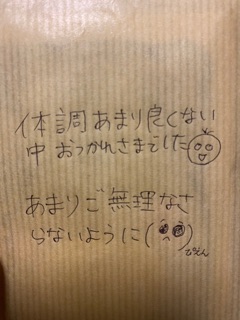 体調あまり良くない
中 おつかれさまでした
あまりご無理なさ
らないように( )
ぴえん